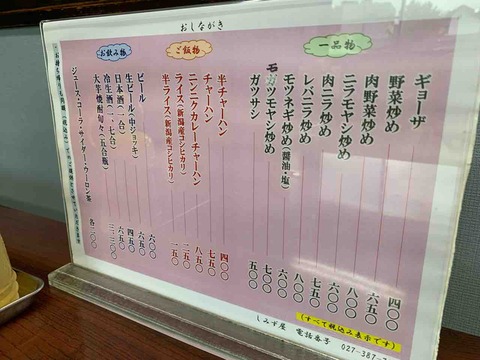 おしながき
一品物
ギョーザ 四〇〇
野菜炒め 六五〇
肉野菜炒め 八〇〇
ニラモヤシ炒め
肉ニラ炒め
レバニラ炒め
モツネギ炒め(醤油・塩)
ガツモヤシ炒め
ガツサシ 五〇〇
ご飯物
半チャーハン 四〇〇
チャーハン 七五〇
ニンニクカレーチャーハン 八五〇
ライス(新潟産コシヒカリ) 二五〇
半ライス(新潟産コシヒカリ) 一五〇
お飲み物
ビール 六〇〇
生ビール(中ジョッキ) 六五〇
日本酒(一合)
冷生酒(一、七合)
大竿焼酎旬々(五合瓶)
ジュース・コーラ・サイダー・ウーロン茶 各二〇〇
(すべて税込み表示です)
しみず屋 電話番号 027-387-